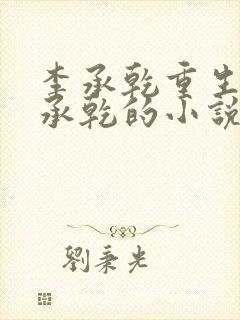 李承乾重生
承乾的小說
劉秉光